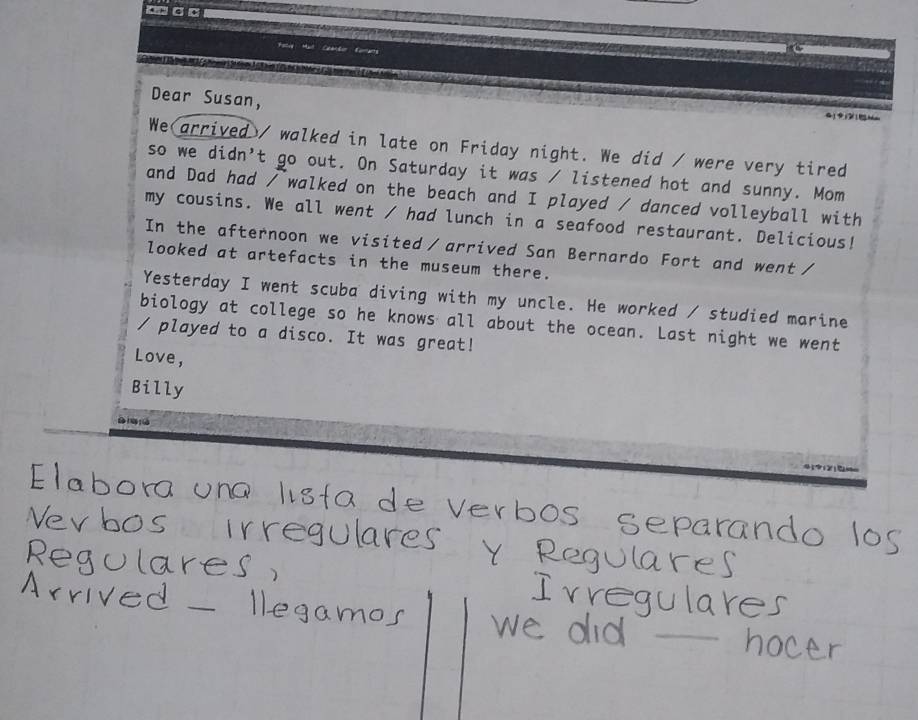 Dear Susan,
We arrived / walked in late on Friday night. We did / were very tired
so we didn't go out. On Saturday it was / listened hot and sunny. Mom
and Dad had / walked on the beach and I played / danced volleyball with
my cousins. We all went / had lunch in a seafood restaurant. Delicious!
In the afternoon we visited / arrived San Bernardo Fort and went /
looked at artefacts in the museum there.
Yesterday I went scuba diving with my uncle. He worked / studied marine
biology at college so he knows all about the ocean. Last night we went
/ played to a disco. It was great!
Love,
Billy
Elabora una lista de verbos separando los
Verbos irregulares y Regulares
Regulares, Irregulares
Arrived - llegamos we did — hacer